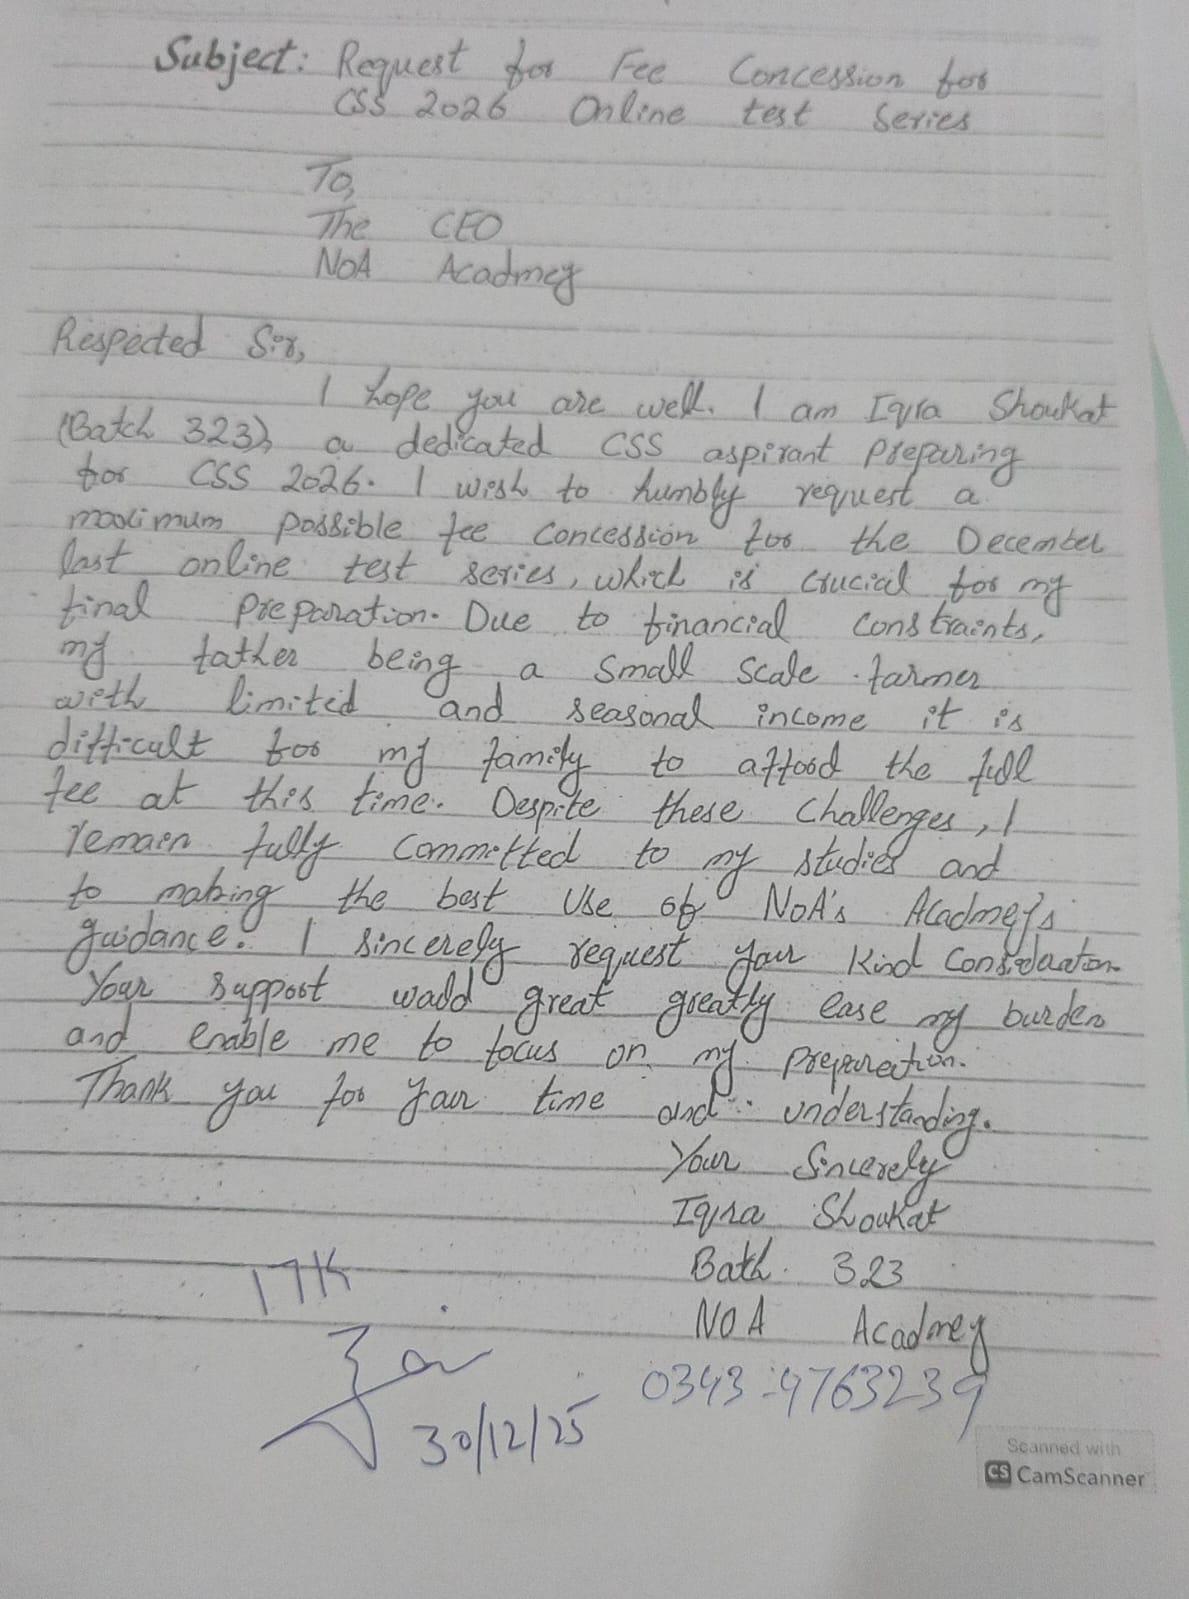 Subject: Request for Fee Concession for
CSS 2026 Online test Series
To,
The CEO
NOA Acadmey
Respected Sir,
I hope you are well. I am Iqra Shoukat
(Batch 323), a dedicated CSS aspirant preparing
for CSS 2026. I wish to humbly request a
maximum possible fee concession for the December
last online test series, which is crucial for my
final preparation. Due to financial constraints,
my father being a small scale farmer
with limited and seasonal income it is
difficult for my family to afford the full
fee at this time. Despite these challenges, I
remain fully committed to my studies and
to making the best use of NOA's Acadmey's
guidance. I sincerely request your kind Consideration
Your support would great greatly ease my burden
and enable me to focus on my preparation.
Thank you for your time and understanding.
Your Sincerely
Iqra Shoukat
Bath. 323
NOA Acadmey
17K
0343-4763239
30/12/25
Scanned with
CS CamScanner